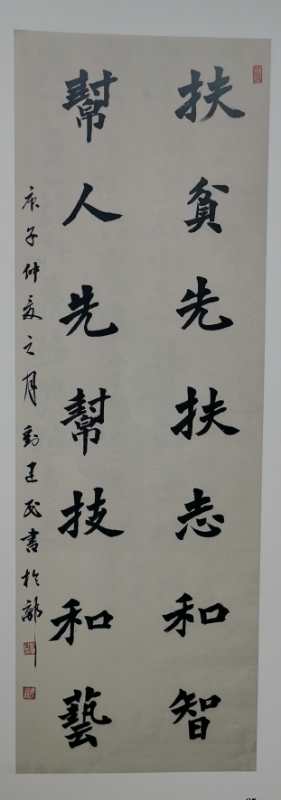 扶貧先扶志和智
幫人先幫技和藝
庚子仲夏之月劉建民書於